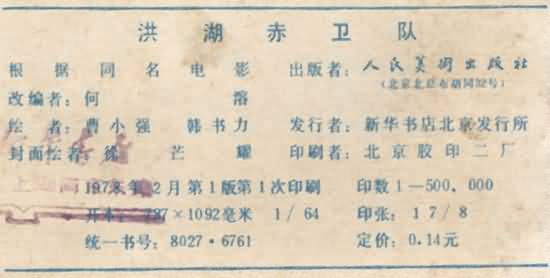 洪湖赤卫队
根据同名电影 出版者：人民美術出版社
（北京北总布胡同32号）
改编者：何溶
绘者：曹小强 韩书力 发行者：新华书店北京发行所
封面绘者：徐芒耀 印刷者：北京胶印二厂
1978年12月第1版第1次印刷 印数1—500,000
开本：787×1092毫米 1/64 印张：17/8
统一书号：8027·6761 定价：0.14元